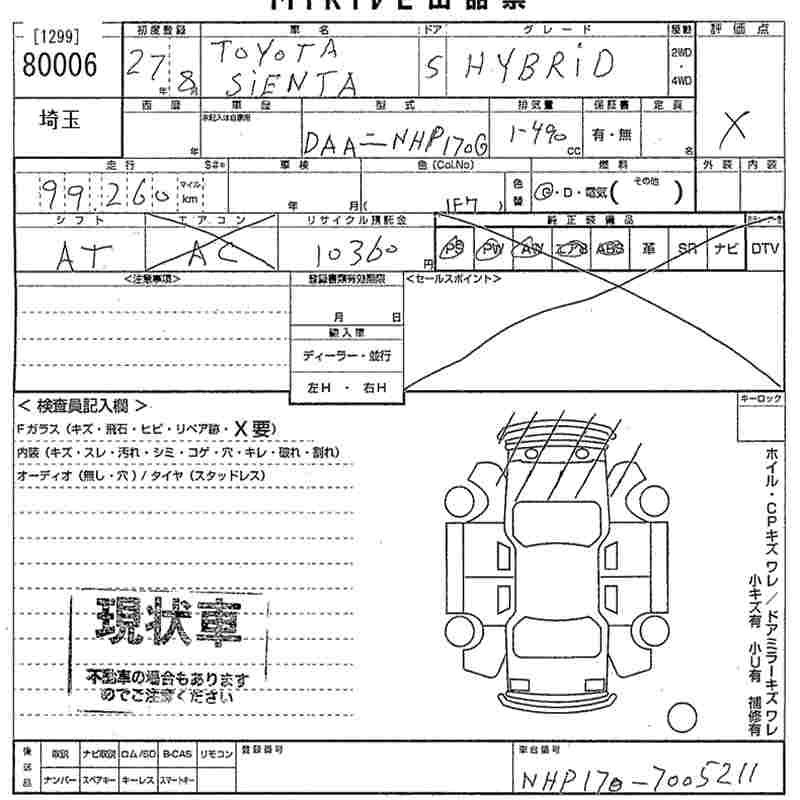 MIRIVE 出品票
[1299]
80006
初度登録 車名 ドア グレード 駆動 評価点
27年 8月 TOYOTA SIENTA 5 HYBRID 2WD・4WD
X
埼玉
西暦 車歴 型式 排気量 保証書 定員
年 未記入は自家用 DAA-NHP170G 1-490 CC 有・無 名
走行 S#* 車検 色 (Col.No) 色替 燃料 外装 内装
99,260 マイル km 年 月( 1F7 ) G・D・電気( その他 )
シフト エアコン リサイクル預託金 純正装備品
AT AC 10360円 PS PW AW エアB ABS 革 SR ナビ DTV
<注意事項> 登録書類有効期限 <セールスポイント>
月 日
輸入車
ディーラー・並行
左H ・ 右H
< 検査員記入欄 > キーロック
Fガラス (キズ・飛石・ヒビ・リペア跡・X要)
内装 (キズ・スレ・汚れ・シミ・コゲ・穴・キレ・破れ・割れ)
オーディオ (無し・穴) / タイヤ (スタッドレス)
ホイル・CPキズ ワレ/ドアミラーキズ ワレ
小キズ有 小U有 補修有
現状車
不動車の場合もあります
のでご注意ください
後送品 取説 ナビ取説 ロム/SD B-CAS リモコン 登録番号 車台番号
ナンバー スペアキー キーレス スマートキー NHP170-7005211